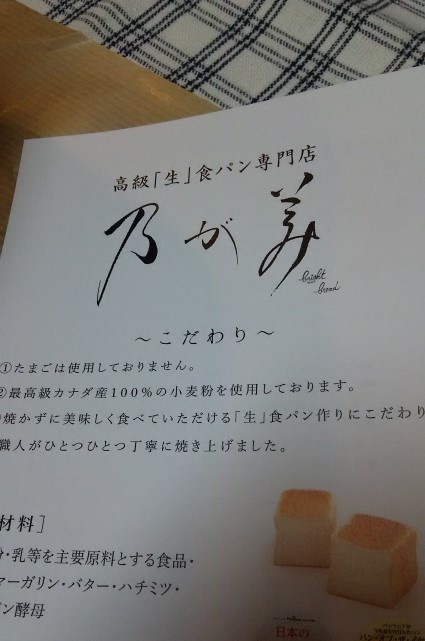 高級「生」食パン専門店
乃が美
bright
bread
～こだわり～
①たまごは使用しておりません。
②最高級カナダ産100%の小麦粉を使用しております。
焼かずに美味しく食べていただける「生」食パン作りにこだわり
職人がひとつひとつ丁寧に焼き上げました。
材料]
・乳等を主要原料とする食品・
マーガリン・バター・ハチミツ・
ン酵母
日本の